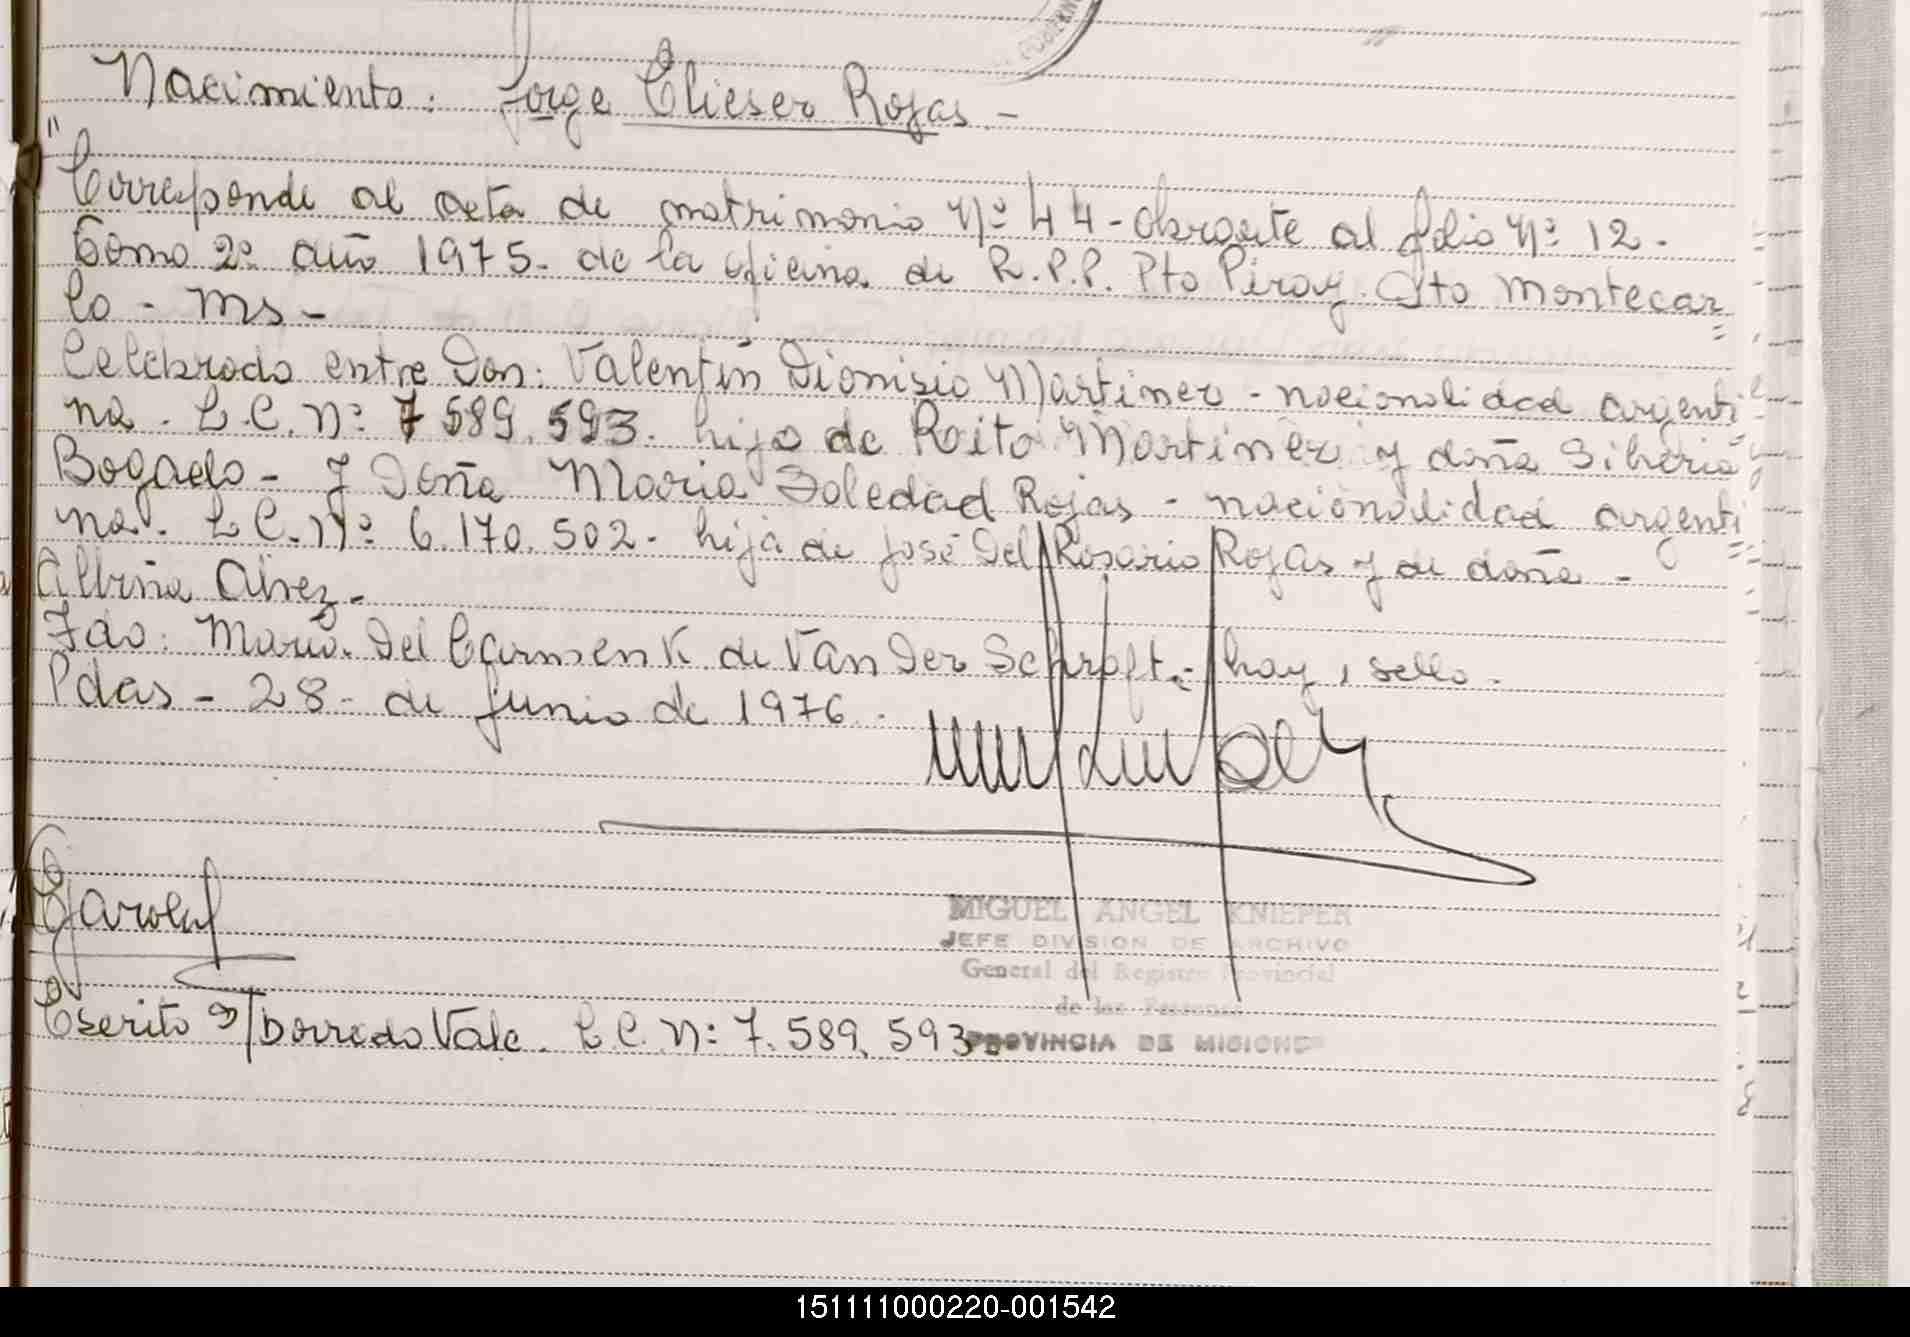 Nacimiento: Jorge Elieser Rojas.-
"Corresponde al acta de matrimonio Nº 44- obrante al folio Nº 12.
Tomo 2º año 1975. de la oficina de R.P.P. Pto Piray. Dto Montecar
lo - Ms-
Celebrado entre Don: Valentín Dionisio Martinez - nacionalidad argenti
na. L.C. Nº 7 589.593. hijo de Roito Martinez y doña Siberia
Bogado - y Doña Maria Soledad Rojas - nacionalidad argenti
na. L C. Nº 6.170.502- hija de José Del Rosario Rojas y de doña -
Albina Alvez.-
Fdo: Maria. Del Carmen K de Van Der Schraft.- hay, sello.
Pdas - 28- de Junio de 1976.
MIGUEL ANGEL KNIEPER
JEFE DIVISION DE ARCHIVO
General del Registro Provincial
de las Personas
PROVINCIA DE MISIONES
Escrito s/borrado Vale. L C. N: 7.589.593
151111000220-001542